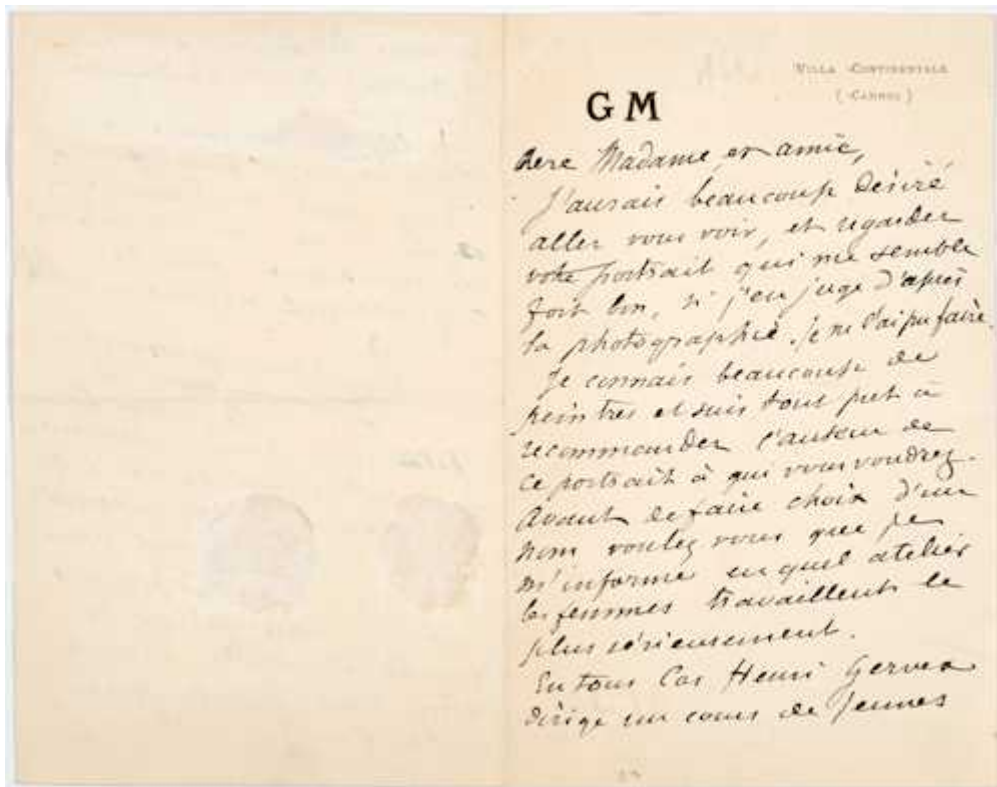 VILLA CONTINENTALE
(CANNES)
GM
here Madame et amie,
J'aurais beaucoup désiré
aller vous voir, et regarder
votre portrait qui me semble
fort bon, si j'en juge d'après
la photographie. Je ne l'ai pu faire.
Je connais beaucoup de
peintres et suis tout prêt à
recommander l'auteur de
ce portrait à qui vous voudrez.
Avant de faire choix d'un
nom voulez vous que je
m'informe en quel atelier
les femmes travaillent le
plus sérieusement.
En tous cas Henri Gervex
dirige un cours de jeunes